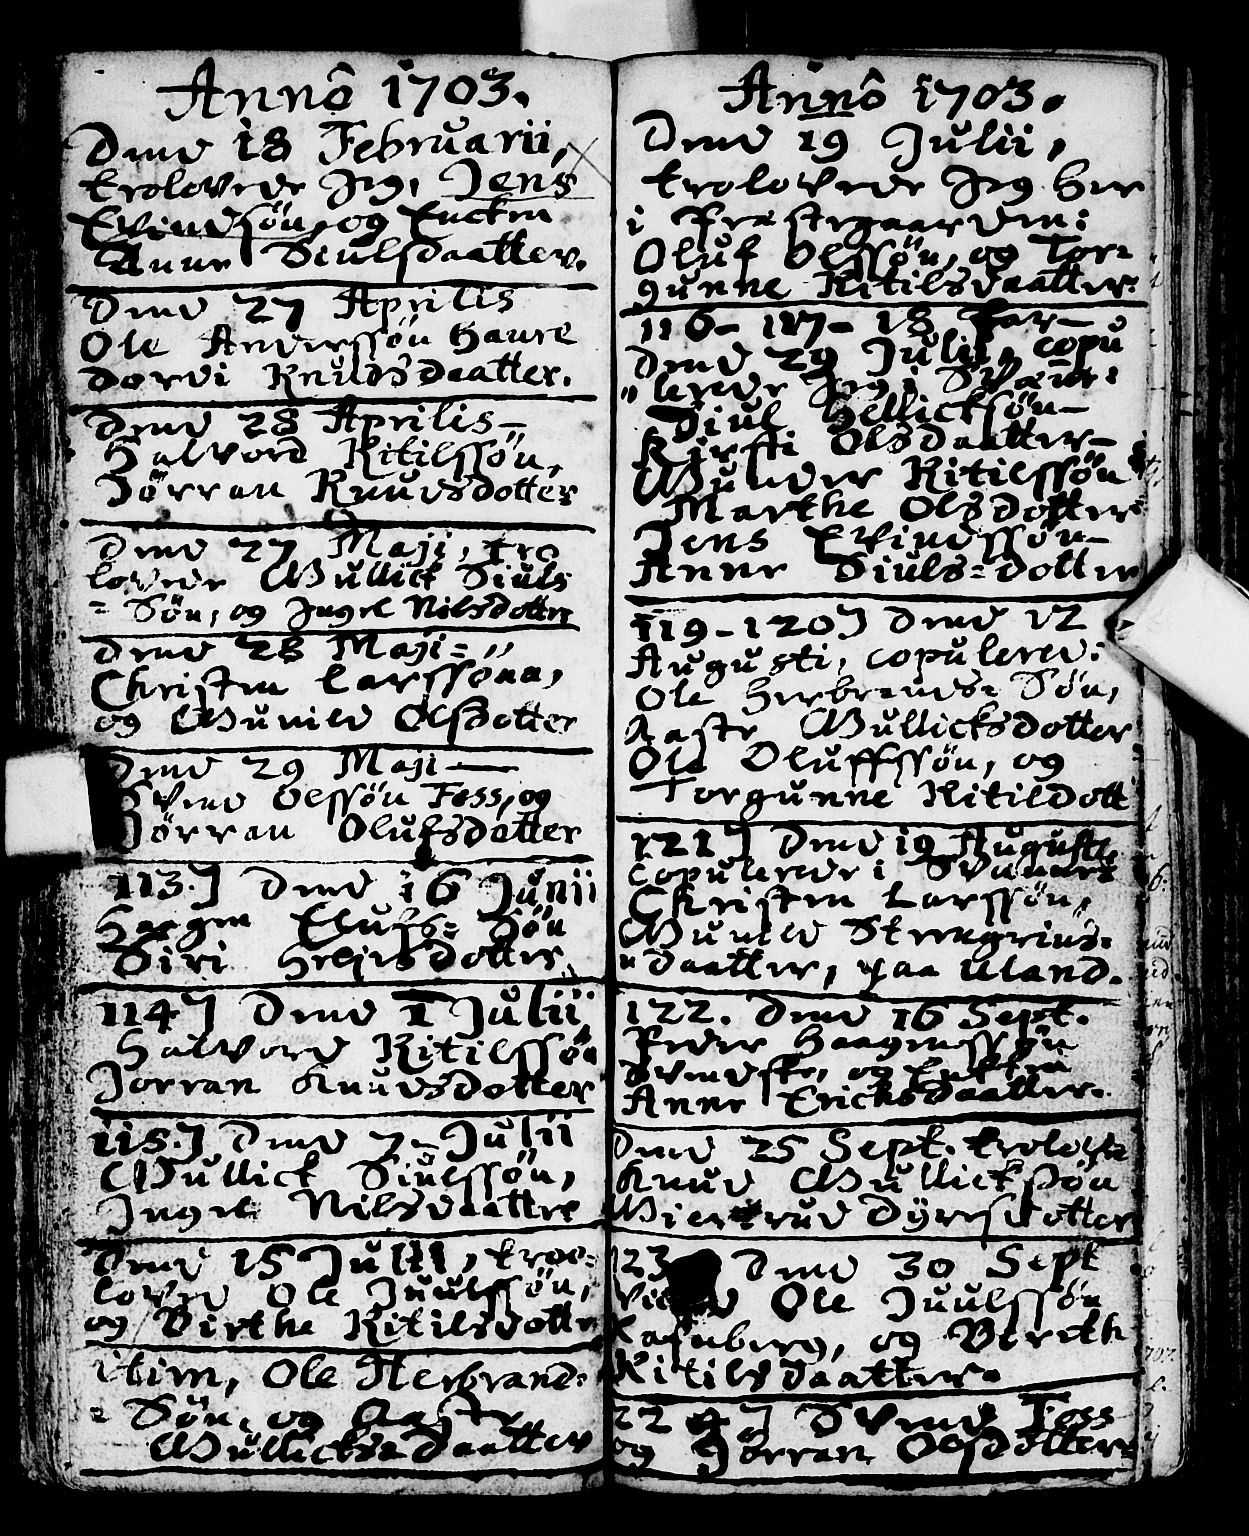 Annô 1703.
Dend 18 Februarii,
trolovede Jeg, Jens
Evindsøn, og Encken
Anne Siulsdaatter.
Dend 27 Aprilis
Ole Anderssøn Haure
Dordi Knudsdaatter.
Dend 28 Aprilis
Halvord Kitilssøn,
Jørran Knudsdotter
Dend 27 Maji, tro
lovede Gullick Siuls
= Søn, og Ingel Nilsdotter
Dend 28 Maji =
Christen Larssønn,
og Gunild Olsdotter
Dend 29 Maji
Svend Olssøn Foss, og
Jørran Olufsdatter
113.] Dend 16 Junii
Haagen Elufs= Søn
Siri Heljesdotter
114] Dend 1 Julii
Halvord Kitilssøn
Jorran Knudsdotter
115.] Dend 2 Julii
Gullick Siulssøn,
Ingel Nilsdaatter
Dend 15 Julii, troe=
loved Ole Juulssøn,
og Birthe Kitilsdotter
itim, Ole Herbrand=
= Søn, og Aaste
Gullicks= Daatter
Annô 1703.
Dend 19 Julii,
trolovede Jeg her
i Præstegaarden:
Oluf Olssøn, og Tor=
gunne Kitilsdaatter.
116 - 117 - 18 Par -
Dend 29 Julii, copu
" lerede Jeg i
Siul Hellicksøn -
Kirsti Olsdaatter -
Gunder Kitilssøn
Marthe Olsdotter
Jens Evindssøn -
Anne Siuls=dotter
119 - 120] Dend 12
Augusti, copulered:
Ole Herbrends= Søn,
Aaste Gullicksdotter
Ole Oluffssøn, og
Torgunne Kitildott
121] Dend 19 Auguste
copulerede i
Christen Larssøn,
Gunild
" daatter, paa Uland.
122. Dend 16 Sept.
Peder Haagenssøn
og Enken
Anne Ericksdaatter.
Dend 25 Sept. trolovede
Knud Gullickssøn
Giertrud Dyresdotter
123 Dend 30 Sept
Ole Juulssøn
og Berith
Kitilsdaatter.
224] Svend Foss
og Jørran Olsdotter